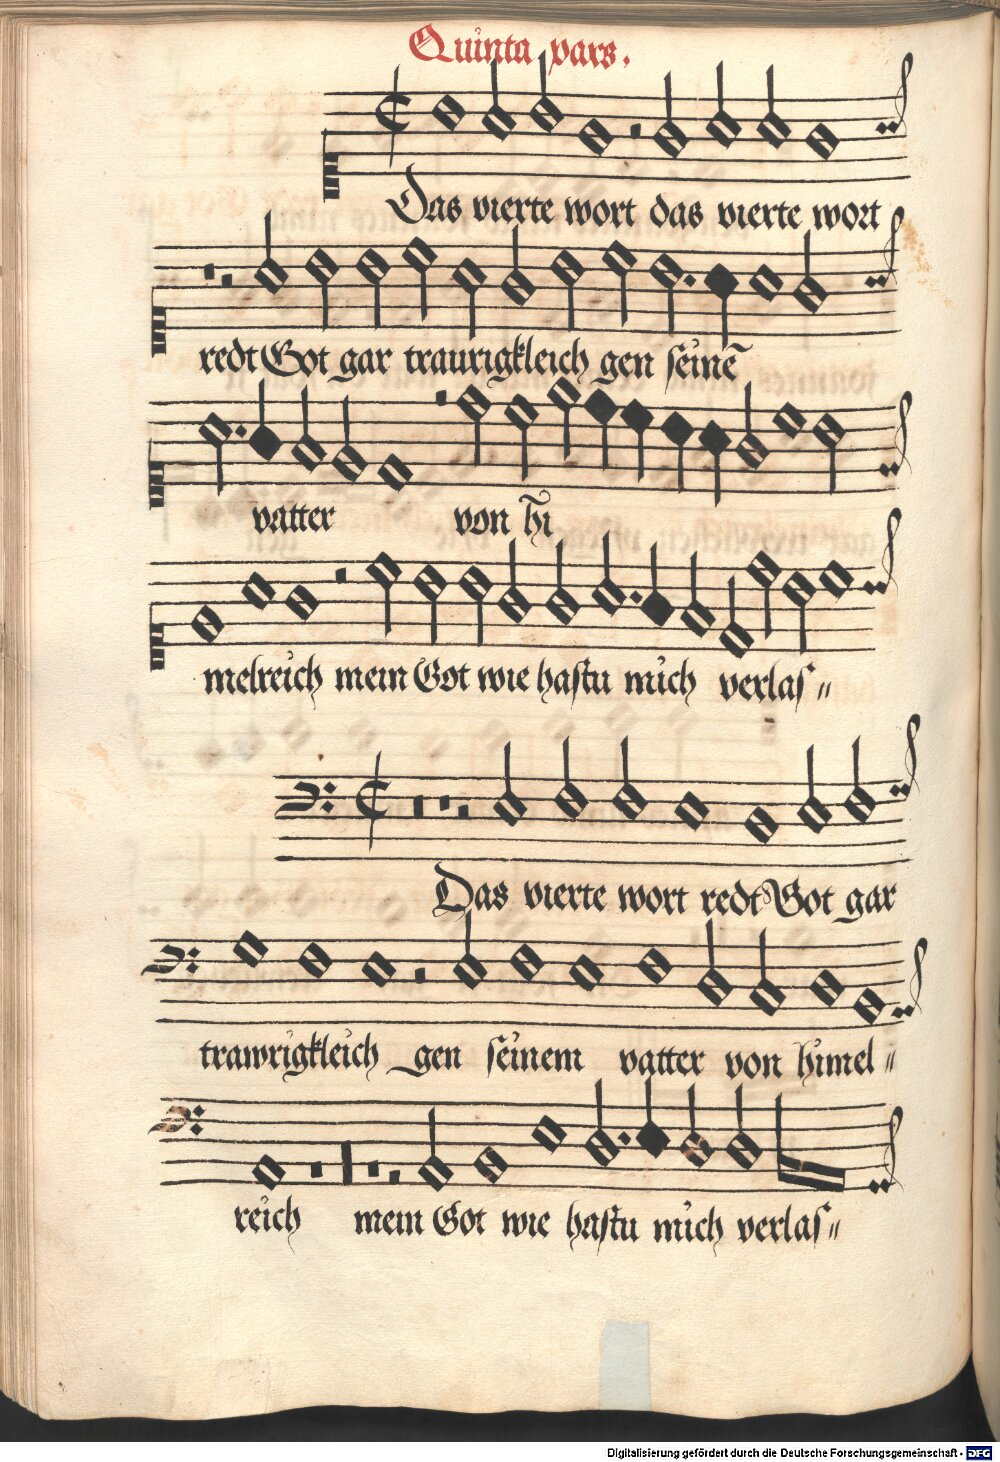 Quinta pars.
Das vierte wort das vierte wort
redt Got gar traurigkleich gen seinē
vatter von hi̅
melreich mein Got wie hastu mich verlas〃
Das vierte wort redt Got gar
trawrigkleich gen seinem vatter von himel〃
reich mein Got wie hastu mich verlas〃
Digitalisierung gefördert durch die Deutsche Forschungsgemeinschaft - DFG